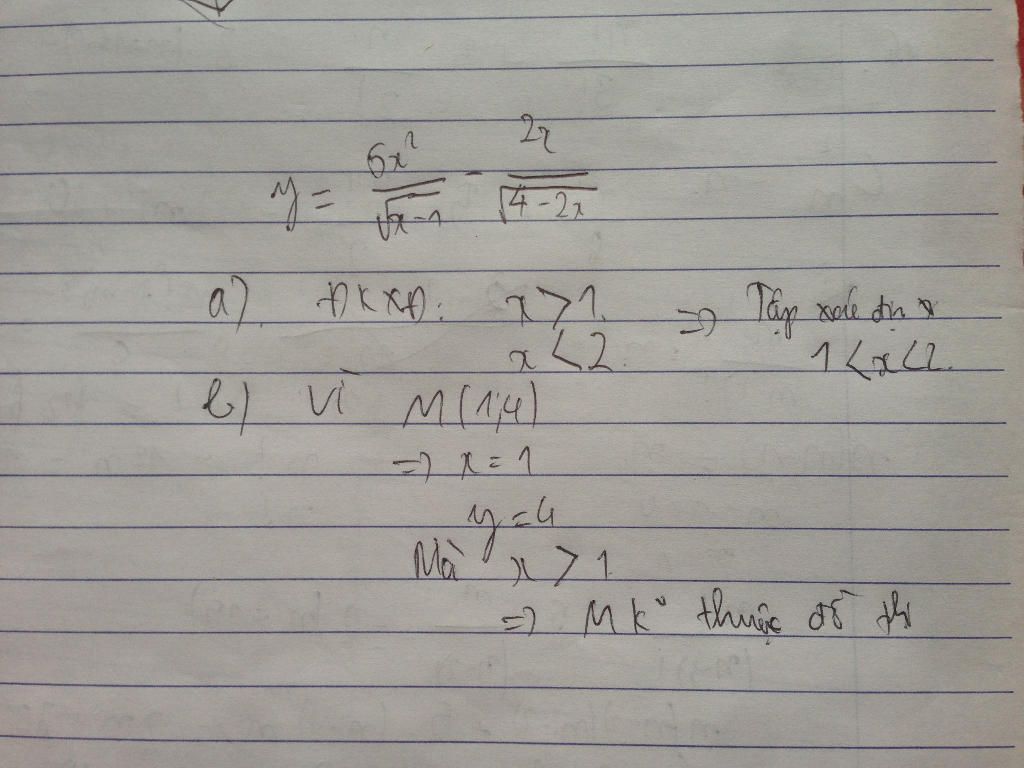 y = 6x² / √(x-1) - 2x / √(4-2x)
a). ĐKXĐ: x > 1. => Tập xác địn x
x < 2. 1 < x < 2.
b) Vì M(1;4)
=> x = 1
y = 4
Mà x > 1
=> M k° thuộc đồ thị